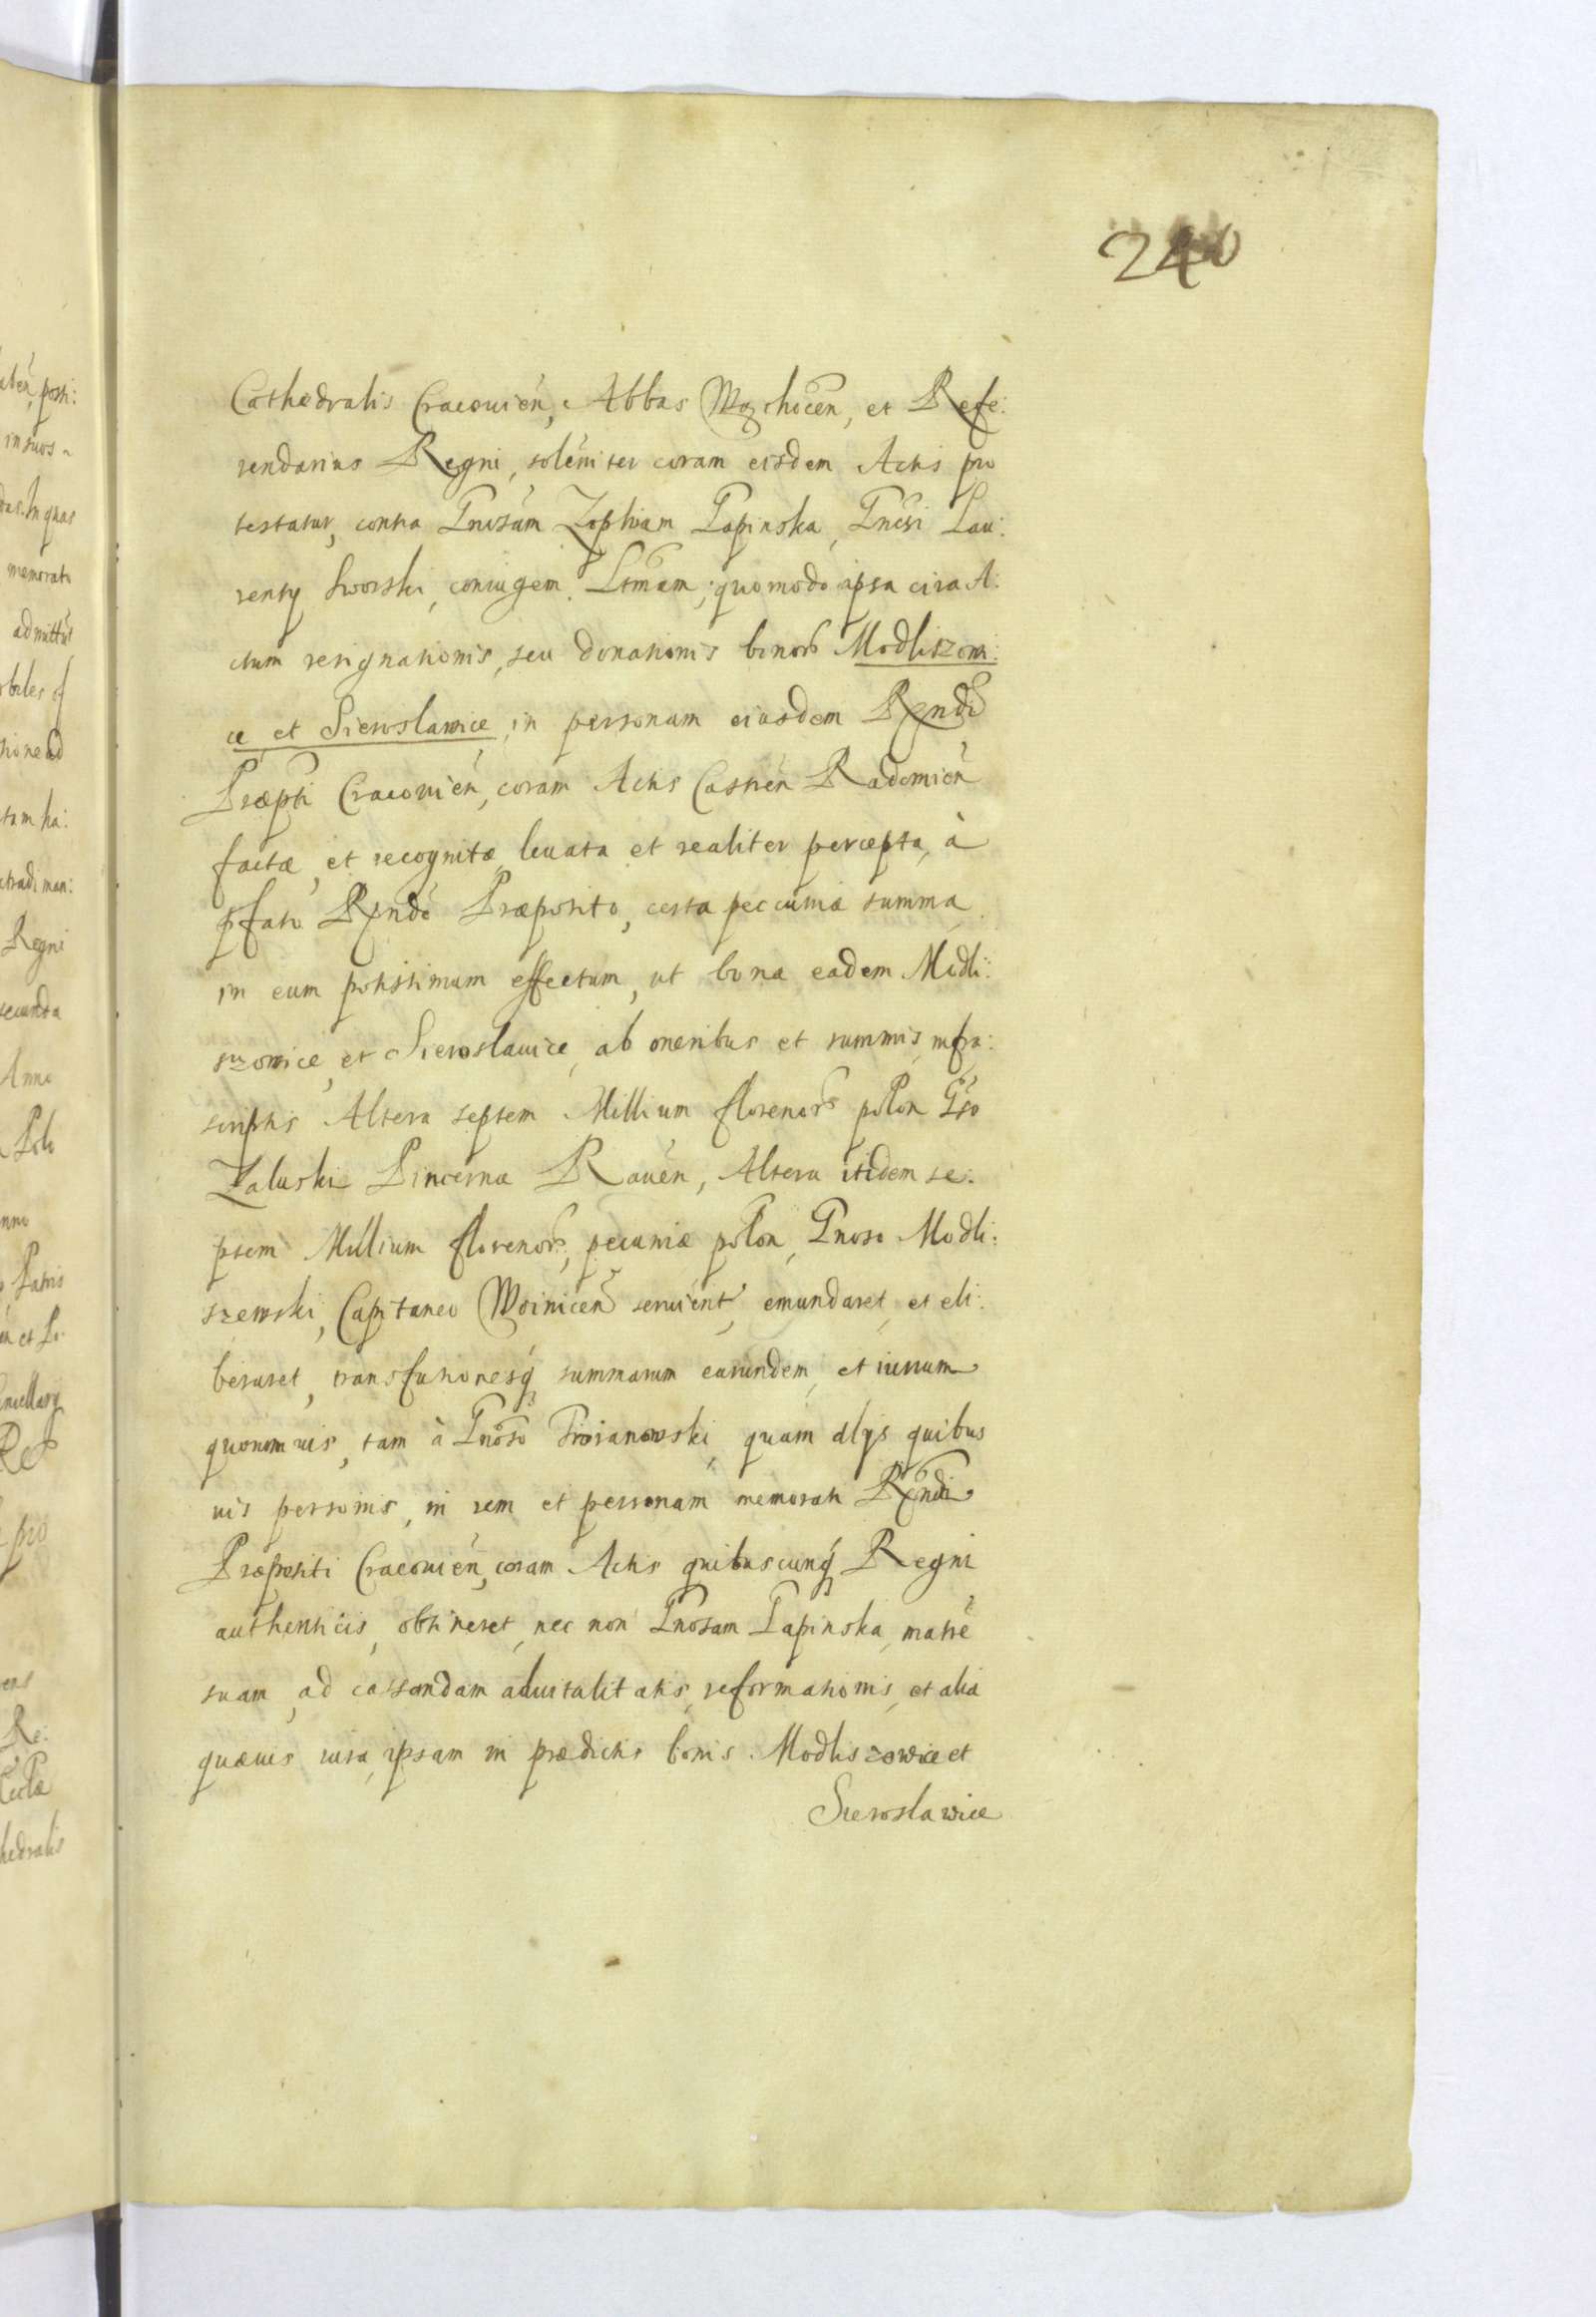 240
Cathedralis Cracouien, Abbas Wąchocen, et Refe:
rendarius Regni, soleniter coram eisdem Actis pro
testatur, contra Gnosam Zophiam Papinska, Gnosi Lau:
renty Sworski, coniugem. Ltmam; quomodo ipsa circa A:
ctum resignationis, seu donationis bonor Modliszowi:
ce et Sieroslawice, in personam eiusdem Rxndi
Præpti Cracouien, coram Actis Castren Radomien
factæ, et recognitæ, leuata et realiter percepta, à
pfato Rxndo Præposito, certa peccuniæ summa
in eum potissimum effectum, ut bona eadem Modli:
szowice, et Sieroslauice, ab oneribus et summis, infra:
scriptis Altera septem Millium florenor polon Gso
Zaluski Pincernæ Rauen, Altera itidem se:
ptem Millium florenor, pecuniæ polon, Gnoso Modli:
szewski, Capitaneo Woinicen seruient, emundaret, et eli:
beraret, transfusionesq summarum earundem, et iurium
quorumuis, tam à Gnoso Troianowski, quàm alys quibus
uis personis, in rem et personam memorati Rxndi
Præpositi Cracouien, coram Actis quibuscunq Regni
authenticis, obtineret, nec non Gnosam Papinska, matre
suam, ad cassandam aduitalitatis, reformationis, et alia
quæuis iura, ipsam in prædictis bonis Modliszowice et
Sieroslawice